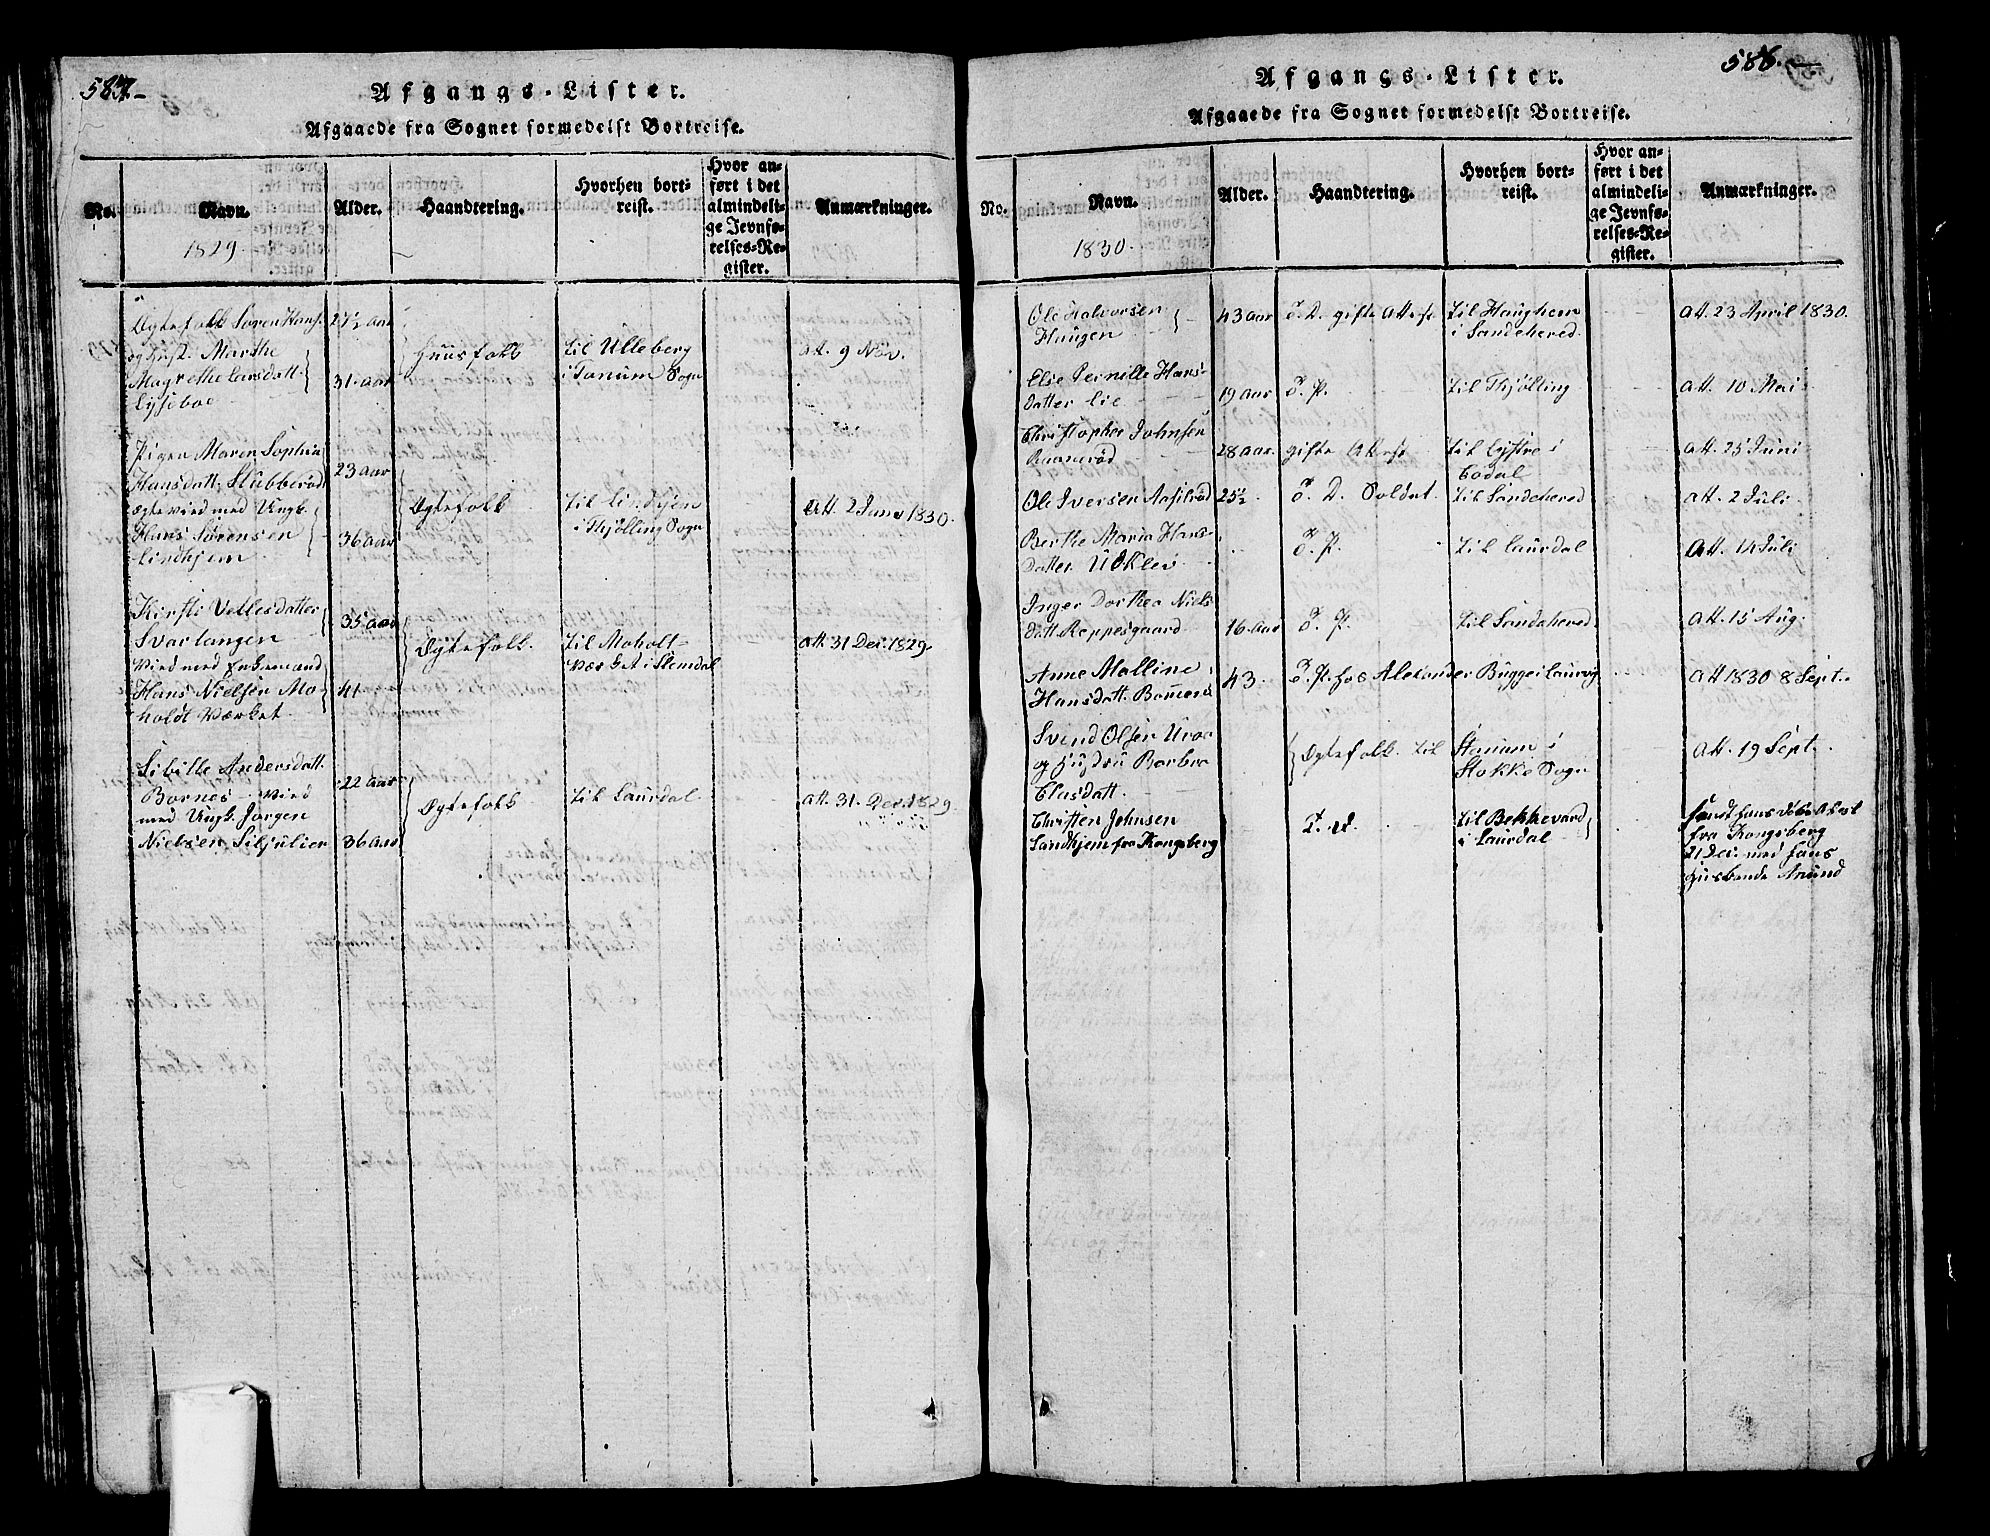 587.
Afgangs-Lister.
Afgaaede fra Sognet formedelst Bortreise.
No.
Navn.
1829.
Alder.
Haandtering.
Hvorhen bort-
reist.
Hvor an-
ført i det
almindeli-
ge Jevnfø-
relses-Re-
gister.
Anmærkninger.
Ægtefolk Søren Hans.
og Hust. Marthe
Magrethe Larsdatt.
Lyseboe
27½ aar
31 aar
Huusfolk
til Ulleberg
i Tanum Sogn
att. 9 Nov.
Pigen Maren Sophia
Hansdatt. Stubberød
ægtevied med Ungk.
Hans Sørensen
Lindhjem
23 aar
36 aar
Ægtefolk
til Lindhjem
i Thjølling Sogn
att. 2 Janv 1830.
Kirsti Vetlesdatter
Svartangen
Vied med Enkemand
Hans Nielsen Mo-
holdt Værket
35 aar
41
Ægtefolk.
til Moholt-
værket i Slemdal
att. 31 Dec. 1829.
Sibille Andersdatt.
Bornes Vied
med Ungk. Jørgen
Nielsen Siljulier
22 aar
36 aar
Ægtefolk
til Laurdal.
att. 31. Dec. 1829.
586.
Afgangs-Lister.
Afgaaede fra Sognet formedelst Bortreise.
No.
Navn.
1830.
Alder.
Haandtering.
Hvorhen bort-
reist.
Hvor an-
ført i det
almindeli-
ge Jevnfø-
relses-Re-
gister.
Anmærkninger.
Ole Halvorsen
Haugen
43 aar
T. D. gifte Attest
til Haughem
i Sandeherred.
att. 23 April 1830.
Else Pernille Hans-
datter Lie
19 aar
T. P.
til Thjølling
att. 10 Mai
Christopher Johnsen
28 aar
gifte Attest
til
att. 25 Juni
Ole Iversen
25½
T. D. Soldat.
til Sandeherred
att. 2 Juli
Berthe Maria Hans-
datter Uklev
T. P.
til Laurdal
att. 14 Juli
Inger Dorthea Niels
datt. Reppesgaard
16 aar
T. P.
til Sandeherred
att. 15 Aug.
Anne Malline
Hansdatt.
43.
T. P. hos Alexander Bugge i Laurvig
att 1830 8 Sept.
Svend Olsen
og Hustru Barbra
Clasdatt.
Ægtefolk. til
Stokke Sogn
att. 19 Sept.
Christen Johnsen
Sandhjem fra Kongsberg
T. d.
til Bekkevard
i Laurdal
fra Kongsberg
21 Dec. med hans